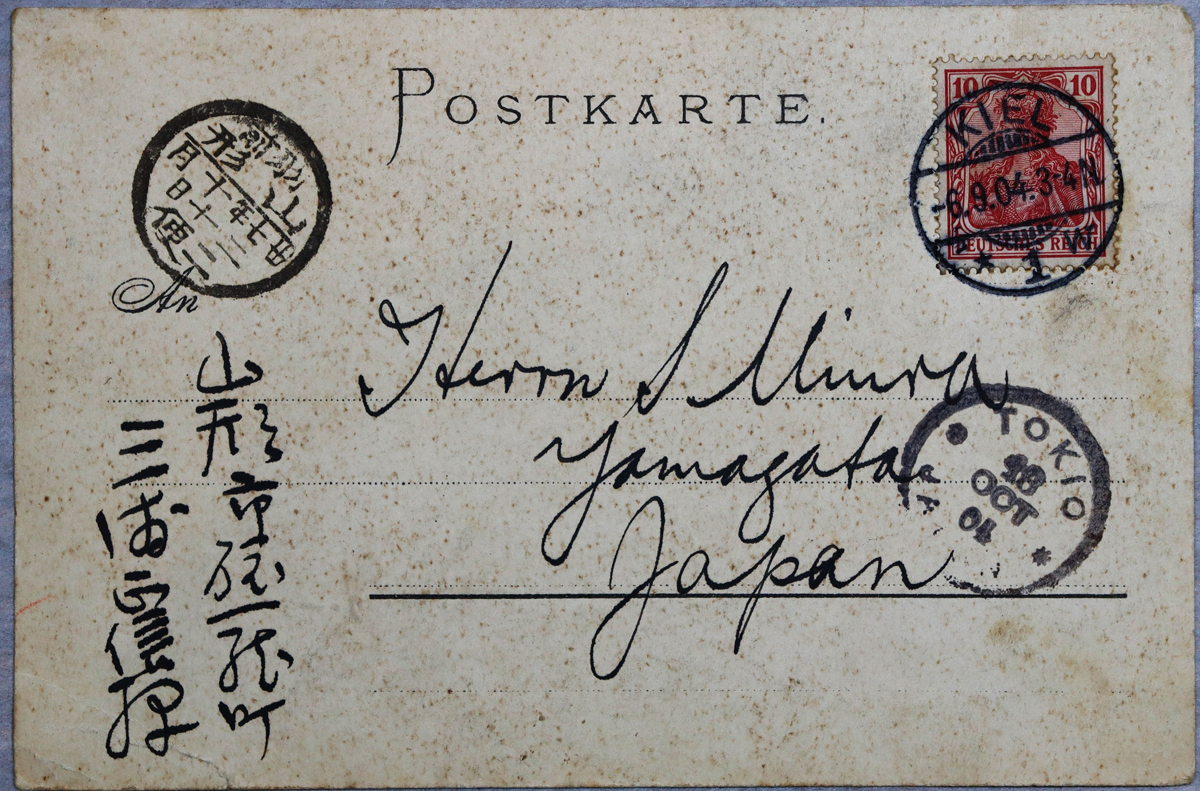 POSTKARTE.
10 10
DEUTSCHES REICH
KIEL
-6.9.04.3-4N.
* 1 W *
羽前
山形
十月十二日
An
Herrn S Miura
Yamagata
Japan
TOKIO
OCT
04
山形市
町
三浦